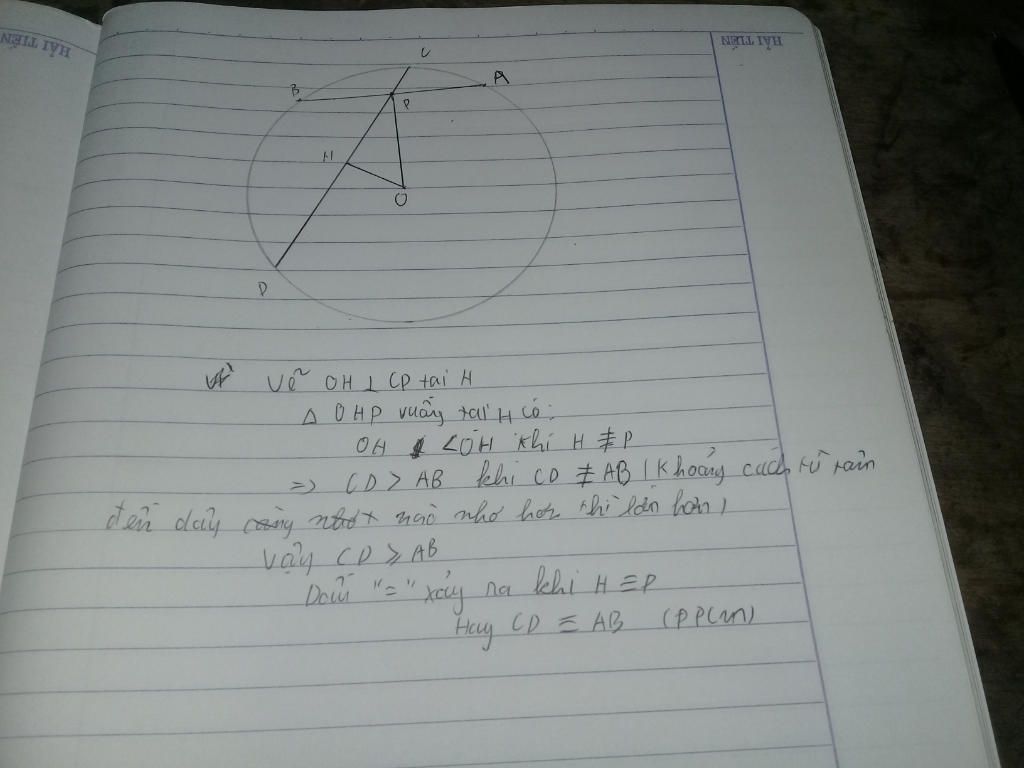 HẢI TIẾN
HẢI TIẾN
C
B
A
P
H
O
D
Vẽ OH ⊥ CD tại H
Δ OHP vuông tại H có:
OH < OH khi H ≢ P
=> CD > AB khi CD ≢ AB (Khoảng cách từ tâm
đến dây nào nhỏ hơn thì lớn hơn)
Vậy CD ≥ AB
Dấu "=" xảy ra khi H ≡ P
Hay CD ≡ AB (ĐPCM)